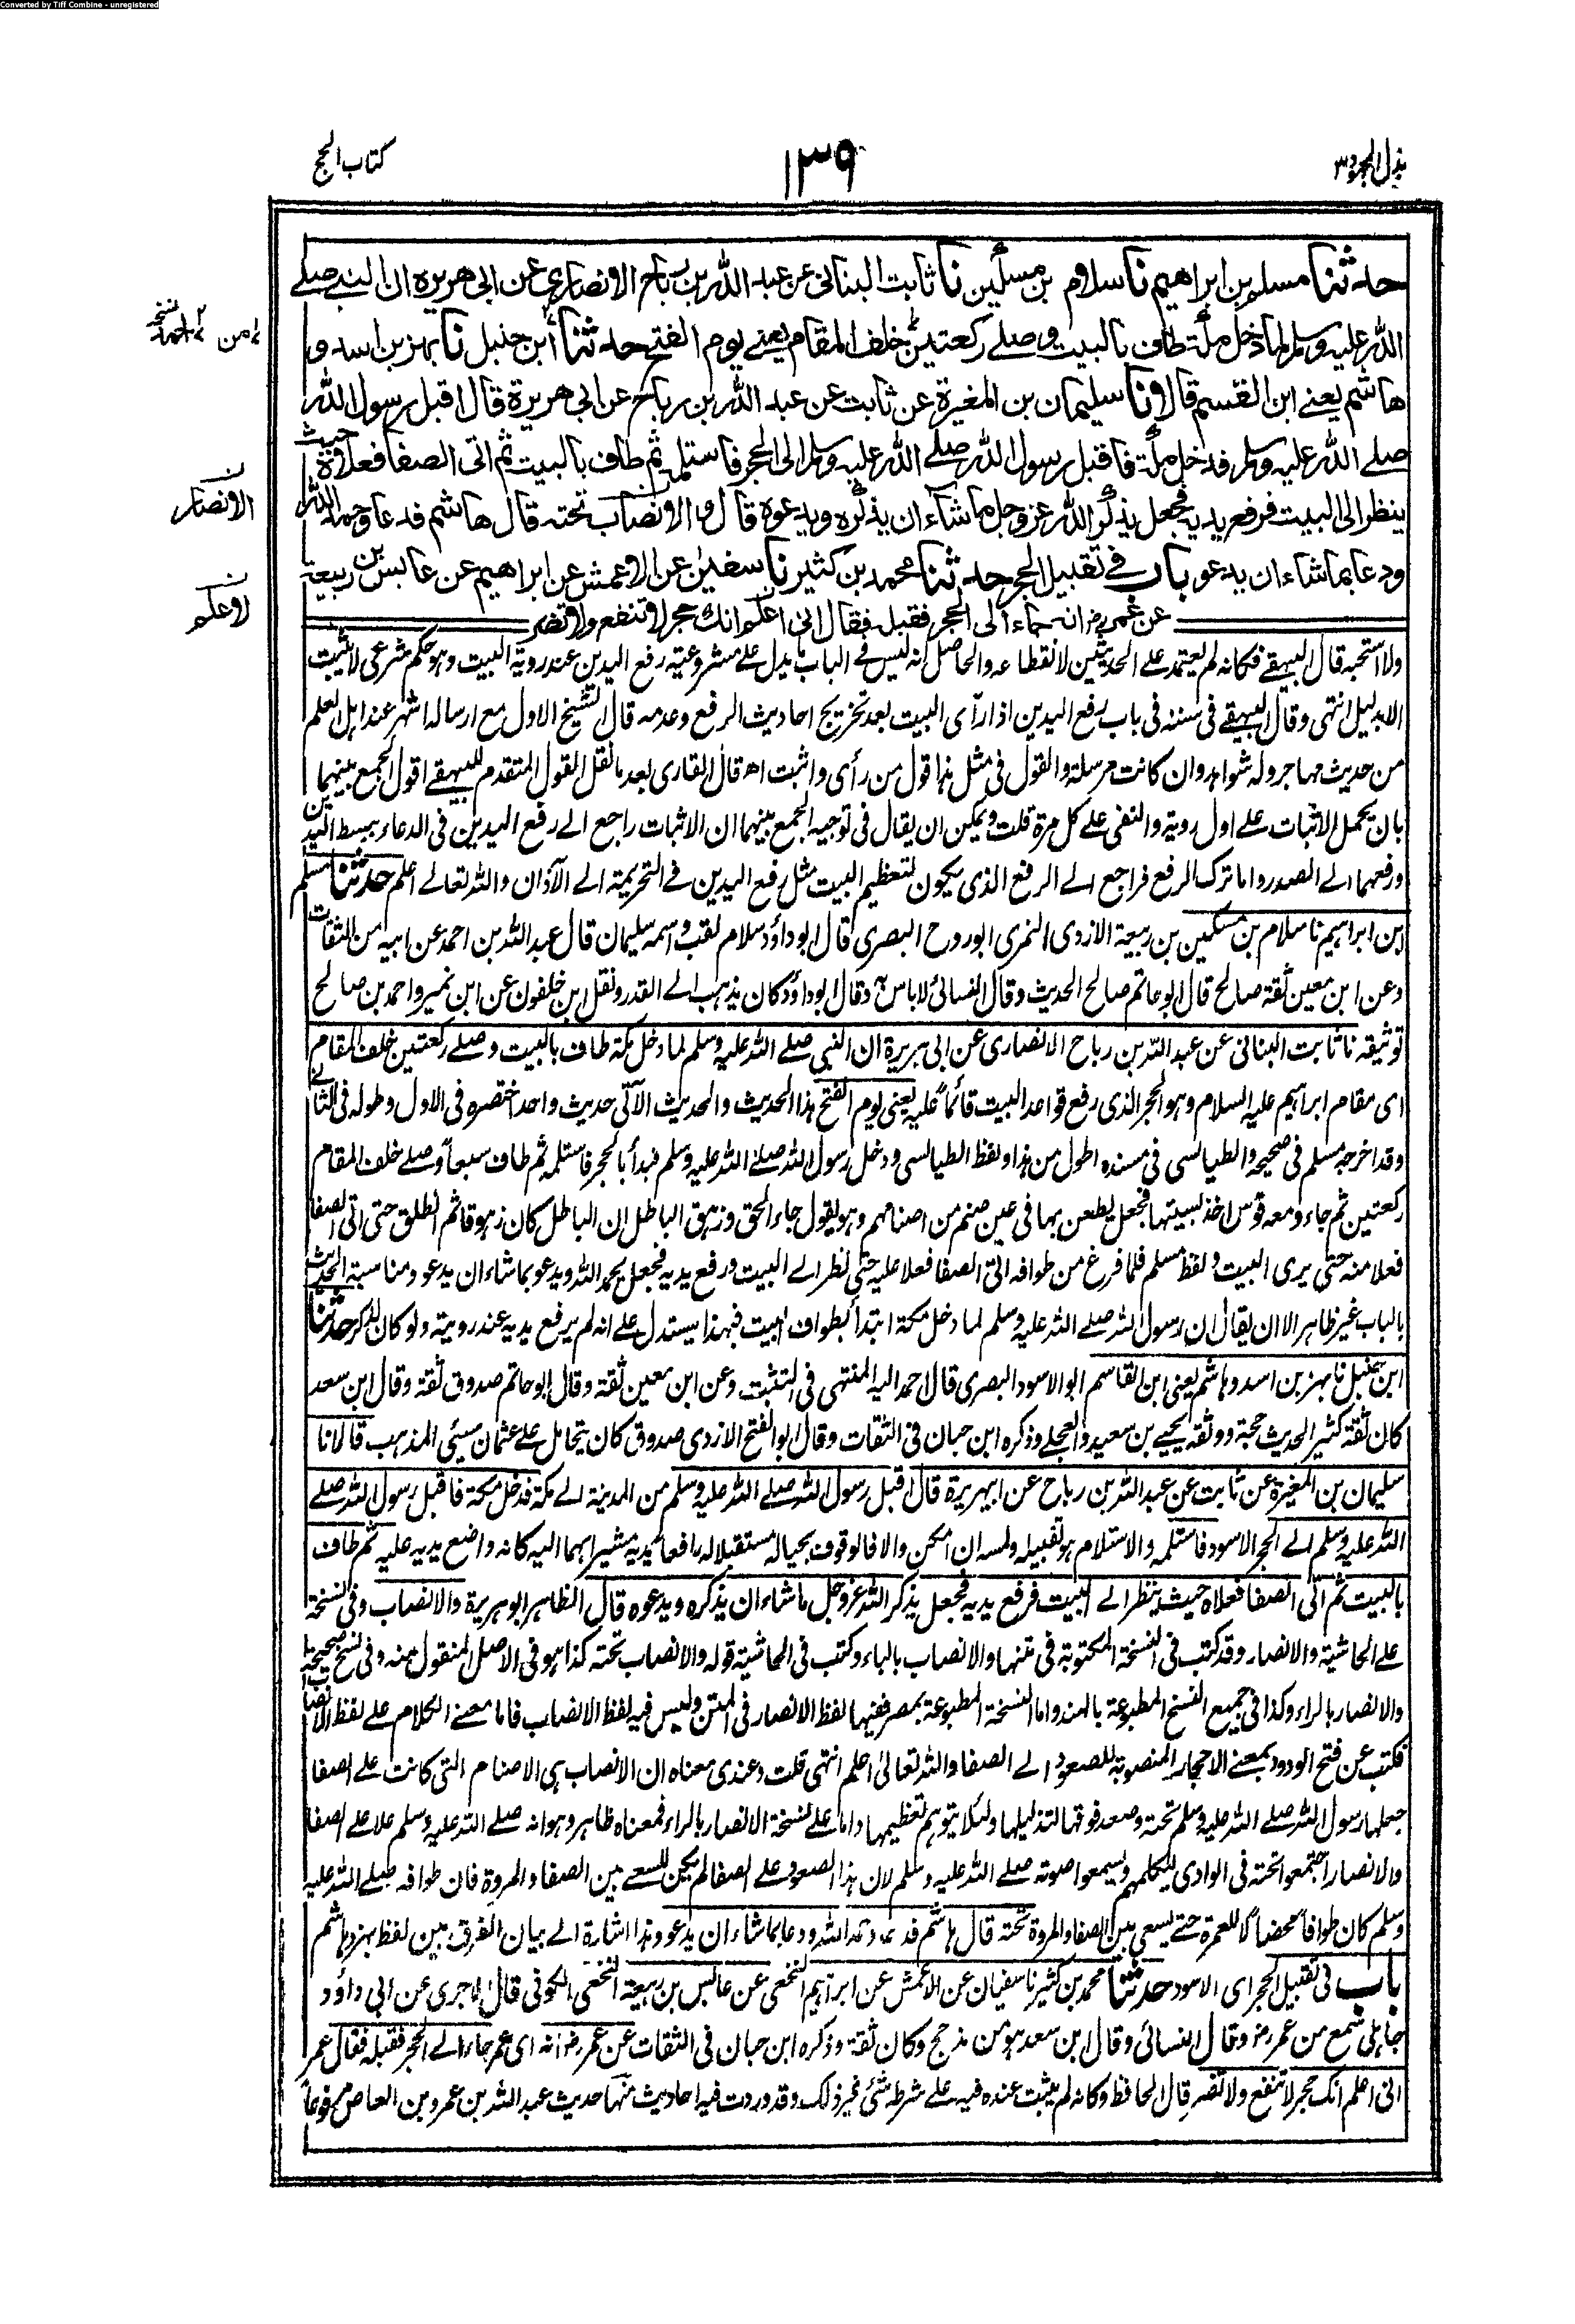 Converted by Tiff Combine - unregistered
بذل المجهود ٣
١٣٩
كتاب الحج
حدثنا مسلم بن ابراهيم نا سلام بن مسكين نا ثابت البنانى عن عبد الله بن رباح الانصارى عن ابى هريرة ان النبى صلے
الله عليه وسلم لما دخل مكة طاف بالبيت وصلے ركعتين خلف المقام يعنے يوم الفتح حدثنا ابن حنبل نا بهز بن اسد و
هاشم يعنے ابن القسم قالا نا سليمان بن المغيرة عن ثابت عن عبد الله بن رباح عن ابى هريرة قال اقبل رسول الله
صلے الله عليه وسلم فدخل مكة فاقبل رسول الله صلے الله عليه وسلم الى الحجر فاستلمه ثم طاف بالبيت ثم اتى الصفا فعلاه حيث
ينظر الى البيت فرفع يديه فجعل يذكر الله عز وجل ما شاء ان يذكره ويدعوه قال والانصاب تحته قال هاشم فدعا وحمد الله
ودعا بما شاء ان يدعو باب فى تقبيل الحجر حدثنا محمد بن كثير نا سفين عن الاعمش عن ابراهيم عن عابس بن ربيعة
عن عمر رضـ انه جاء الى الحجر فقبله فقال انى اعلم انك حجر لا تنفع ولا تضر
نسخه
احمد
الانصار
لاعلم
ولا استحبه قال البيهقے فكانه لم يعتمد علے الحديثين لانقطاعه والحاصل انه ليس فے الباب ما يدل علے مشروعية رفع اليدين عند روية البيت وهو حكم شرعى لا يثبت
الا بدليل انتهى وقال البيهقے فى سننه فى باب رفع اليدين اذا رآى البيت بعد تخريج احاديث الرفع وعدمه قال الشيخ الاول مع ارساله اشهر عند اهل العلم
من حديث مهاجر وله شواهد وان كانت مرسلة والقول فى مثل هذا قول من رأى واثبت اھ قال القارى بعد ما نقل القول المتقدم للبيهقے اقول الجمع بينهما
بان يحمل الاثبات علے اول روية والنفى علے كل مرة قلت ويمكن ان يقال فى توجيه الجمع بينهما ان الاثبات راجع الے رفع اليدين فى الدعاء ببسط اليدين
ورفعهما الے الصدر واما ترك الرفع فراجع الے الرفع الذى يكون لتعظيم البيت مثل رفع اليدين فے التحريمة الے الآذان والله تعالے اعلم حدثنا مسلم
ابن ابراهيم نا سلام بن مسكين بن ربيعة الازدى النمرى ابو روح البصرى قال ابو داؤد سلام لقب واسمه سليمان قال عبد الله بن احمد عن ابيه من الثقات
وعن ابن معين ثقة صالح قال ابو حاتم صالح الحديث وقال النسائى لا باس به وقال ابو داؤد كان يذهب الے القدر ونقل ابن خلفون عن ابن نمير واحمد بن صالح
توثيقه نا ثابت البنانى عن عبد الله بن رباح الانصارى عن ابى هريرة ان النبى صلے الله عليه وسلم لما دخل مكة طاف بالبيت وصلے ركعتين خلف المقام
اى مقام ابراهيم عليه السلام وهو الحجر الذى رفع قواعد البيت قائما عليه يعنى يوم الفتح هذا الحديث والحديث الآتى حديث واحد اختصره فى الاول وطوله فى الثانے
وقد اخرجه مسلم فى صحيحه والطيالسى فى مسنده اطول من هذا ولفظ الطيالسى ودخل رسول الله صلے الله عليه وسلم فبدأ بالحجر فاستلمه ثم طاف سبعاً وصلے خلف المقام
ركعتين ثم جاء ومعه قوس اخذ بسيتها فجعل يطعن بها فى عين صنم من اصنامهم وهو يقول جاء الحق وزهق الباطل ان الباطل كان زهوقا ثم انطلق حتى اتى الصفا
فعلا منه حتى يرى البيت ولفظ مسلم فلما فرغ من طوافه اتى الصفا فعلا عليه حتى نظر الے البيت ورفع يديه فجعل يحمد الله ويدعو بما شاء ان يدعو ومناسبة الحديث
بالباب غير ظاهر الا ان يقال ان رسول الله صلے الله عليه وسلم لما دخل مكة ابتدأ بطواف البيت فبهذا يستدل علے انه لم يرفع يديه عند رويته ولو كان لذكر حدثنا
ابن حنبل نا بهز بن اسد وهاشم يعنى ابن القاسم ابو الاسود البصرى قال احمد اليه المنتهى فى التثبت وعن ابن معين ثقة وقال ابو حاتم صدوق ثقة وقال ابن سعد
كان ثقة كثير الحديث حجة ووثقه يحيے بن سعيد والعجلے وذكره ابن حبان فى الثقات وقال ابو الفتح الازدى صدوق كان يتحامل علے عثمان سيئى المذهب قالا نا
سليمان بن المغيرة عن ثابت عن عبد الله بن رباح عن ابيهريرة قال اقبل رسول الله صلے الله عليه وسلم من المدينة الے مكة فدخل مكة فاقبل رسول الله صلے
الله عليه وسلم الے الحجر الاسود فاستلمه والاستلام هو تقبيله ولمسه ان امكن والا فالوقوف بحياله مستقبلا له رافعا يديه مشيرا بهما اليه كانه واضع يديه عليه ثم طاف
بالبيت ثم اتى الصفا فعلاه حيث ينظر الے البيت فرفع يديه فجعل يذكر الله عز وجل ما شاء ان يذكره ويدعوه قال الظاهر ابو هريرة والانصاب وفى نسخة
علے الحاشية والانصار وقد كتب فى النسخة المكتوبة فى متنها والانصاب بالباء وكتب فى الحاشية قوله والانصاب تحته كذا هو فى الاصل المنقول منه وفى نسخ صحيحة
والانصار بالراء وكذا فى جميع النسخ المطبوعة بالهند واما النسخة المطبوعة بمصر ففيها لفظ الانصار فى المتن وليس فيه لفظ الانصاب فاما معنے الكلام علے لفظ الانصاب
فكتب عن فتح الودود بمعنے الاحجار المنصوبة للصعود الے الصفا والله تعالى اعلم انتهى قلت وعندى معناه ان الانصاب هى الاصنام التى كانت علے الصفا
جعلها رسول الله صلے الله عليه وسلم تحته وصعد فوقها لتذليلها ولئلا يتوهم تعظيمها واما علے نسخة الانصار بالراء فمعناه ظاهر وهو انه صلے الله عليه وسلم علا علے الصفا
والانصار اجتمعوا تحته فى الوادى ليكلمهم ويسمعوا صوته صلے الله عليه وسلم لان هذا الصعود علے الصفا لم يكن للسعے بين الصفا والمروة فان طوافه صلے الله عليه
وسلم كان طوافا محضا لا للعمرة حتے يسعى بين الصفا والمروة تحته قال هاشم فدعا وحمد الله ودعا بما شاء ان يدعو وهذا اشارة الے بيان الفرق بين لفظ بهز وهاشم
باب فى تقبيل الحجر اى الاسود حدثنا محمد بن كثير نا سفيان عن الاعمش عن ابراهيم النخعى عن عابس بن ربيعة النخعى الكوفى قال الآجرى عن ابى داؤد
جاهلى سمع من عمر رضـ وقال النسائى وقال ابن سعد هو من مذحج وكان ثقة وذكره ابن حبان فى الثقات عن عمر رضـ انه اى عمر جاء الے الحجر فقبله فقال عمر
انى اعلم انك حجر لا تنفع ولا تضر قال الحافظ وكانه لم يثبت عنده فيه علے شرطه شئى غير ذلك وقد وردت فيه احاديث منها حديث عبد الله بن عمرو بن العاص مرفوعاً